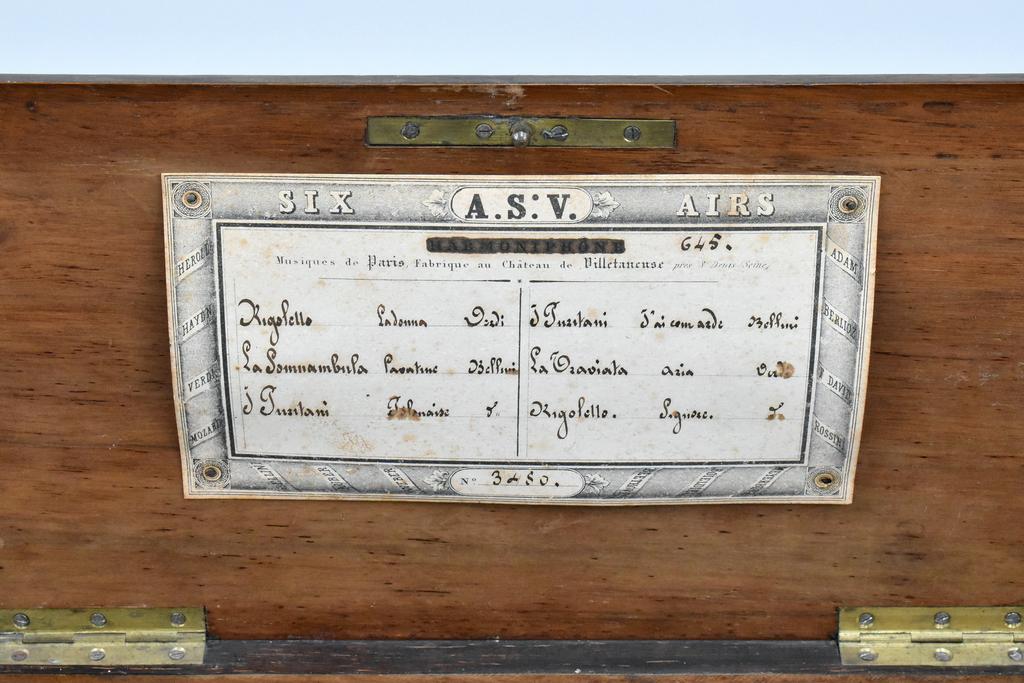 SIX A.S.V. AIRS
HARMONIPHÔNE 645.
Musiques de Paris, Fabrique au Château de Villetaneuse près St Denis Seine,
Rigoletto Ladonna Verdi
La Somnambula Cavatine Bellini
I Puritani Polonaise d.
I Puritani J'ai com arde Bellini
La Traviata aria Verdi
Rigoletto. Signore. d.
HEROLD
HAYDN
VERDI
MOZART
ADAM
BERLIOZ
DAVID
ROSSINI
WEBER
No 3480.